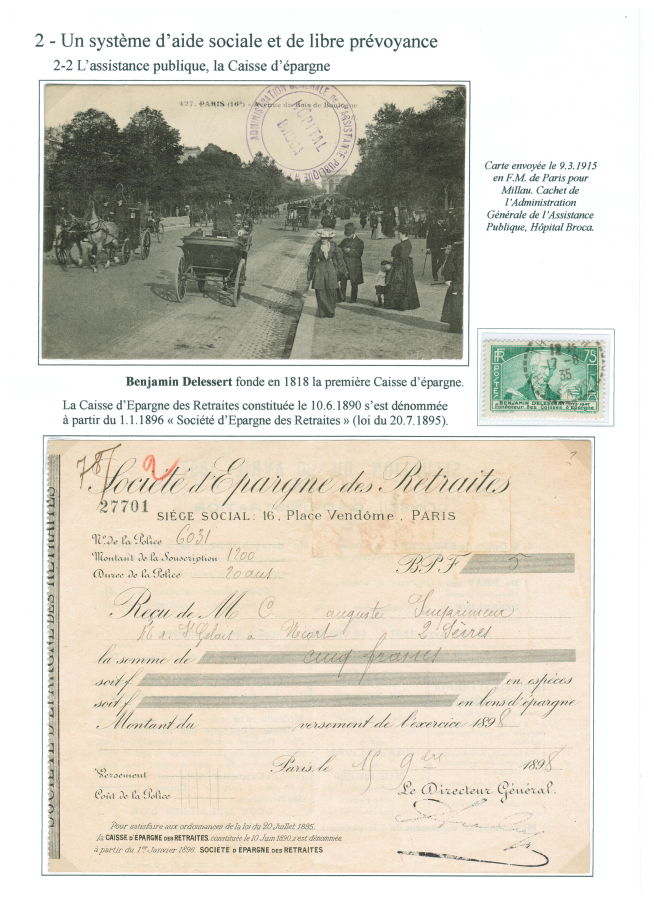 2 - Un système d’aide sociale et de libre prévoyance
2-2 L’assistance publique, la Caisse d’épargne
427. PARIS (16e) - Avenue du Bois de Boulogne
ADMINISTRATION GÉNÉRALE DE L'ASSISTANCE PUBLIQUE
HOPITAL
BROCA
Carte envoyée le 9.3.1915
en F.M. de Paris pour
Millau. Cachet de
l’Administration
Générale de l’Assistance
Publique, Hôpital Broca.
RF
75
POSTES
35
BENJAMIN DELESSERT
Fondateur des Caisses d'Epargne
Benjamin Delessert fonde en 1818 la première Caisse d’épargne.
La Caisse d’Epargne des Retraites constituée le 10.6.1890 s’est dénommée
à partir du 1.1.1896 « Société d’Epargne des Retraites » (loi du 20.7.1895).
78
2
Société d'Epargne des Retraites
27701
SIÈGE SOCIAL: 16, Place Vendôme, PARIS
No de la Police 6031
Montant de la Souscription 1200
Durée de la Police 20 ans
B.P.F. 5
Reçu de M C. auguste Imprimeur
à Niort 2 Sèvres
la somme de cinq francs
soit f en espèces
soit f en bons d'épargne
Montant du versement de l'exercice 1898
Paris, le 15 9bre 1898
Versement
Coût de la Police
Le Directeur Général.
Pour satisfaire aux ordonnances de la loi du 20 Juillet 1895,
la CAISSE D'ÉPARGNE DES RETRAITES, constituée le 10 Juin 1890 s'est dénommée
à partir du 1er Janvier 1896 SOCIÉTÉ D'ÉPARGNE DES RETRAITES
SOCIÉTÉ D'ÉPARGNE DES RETRAITES